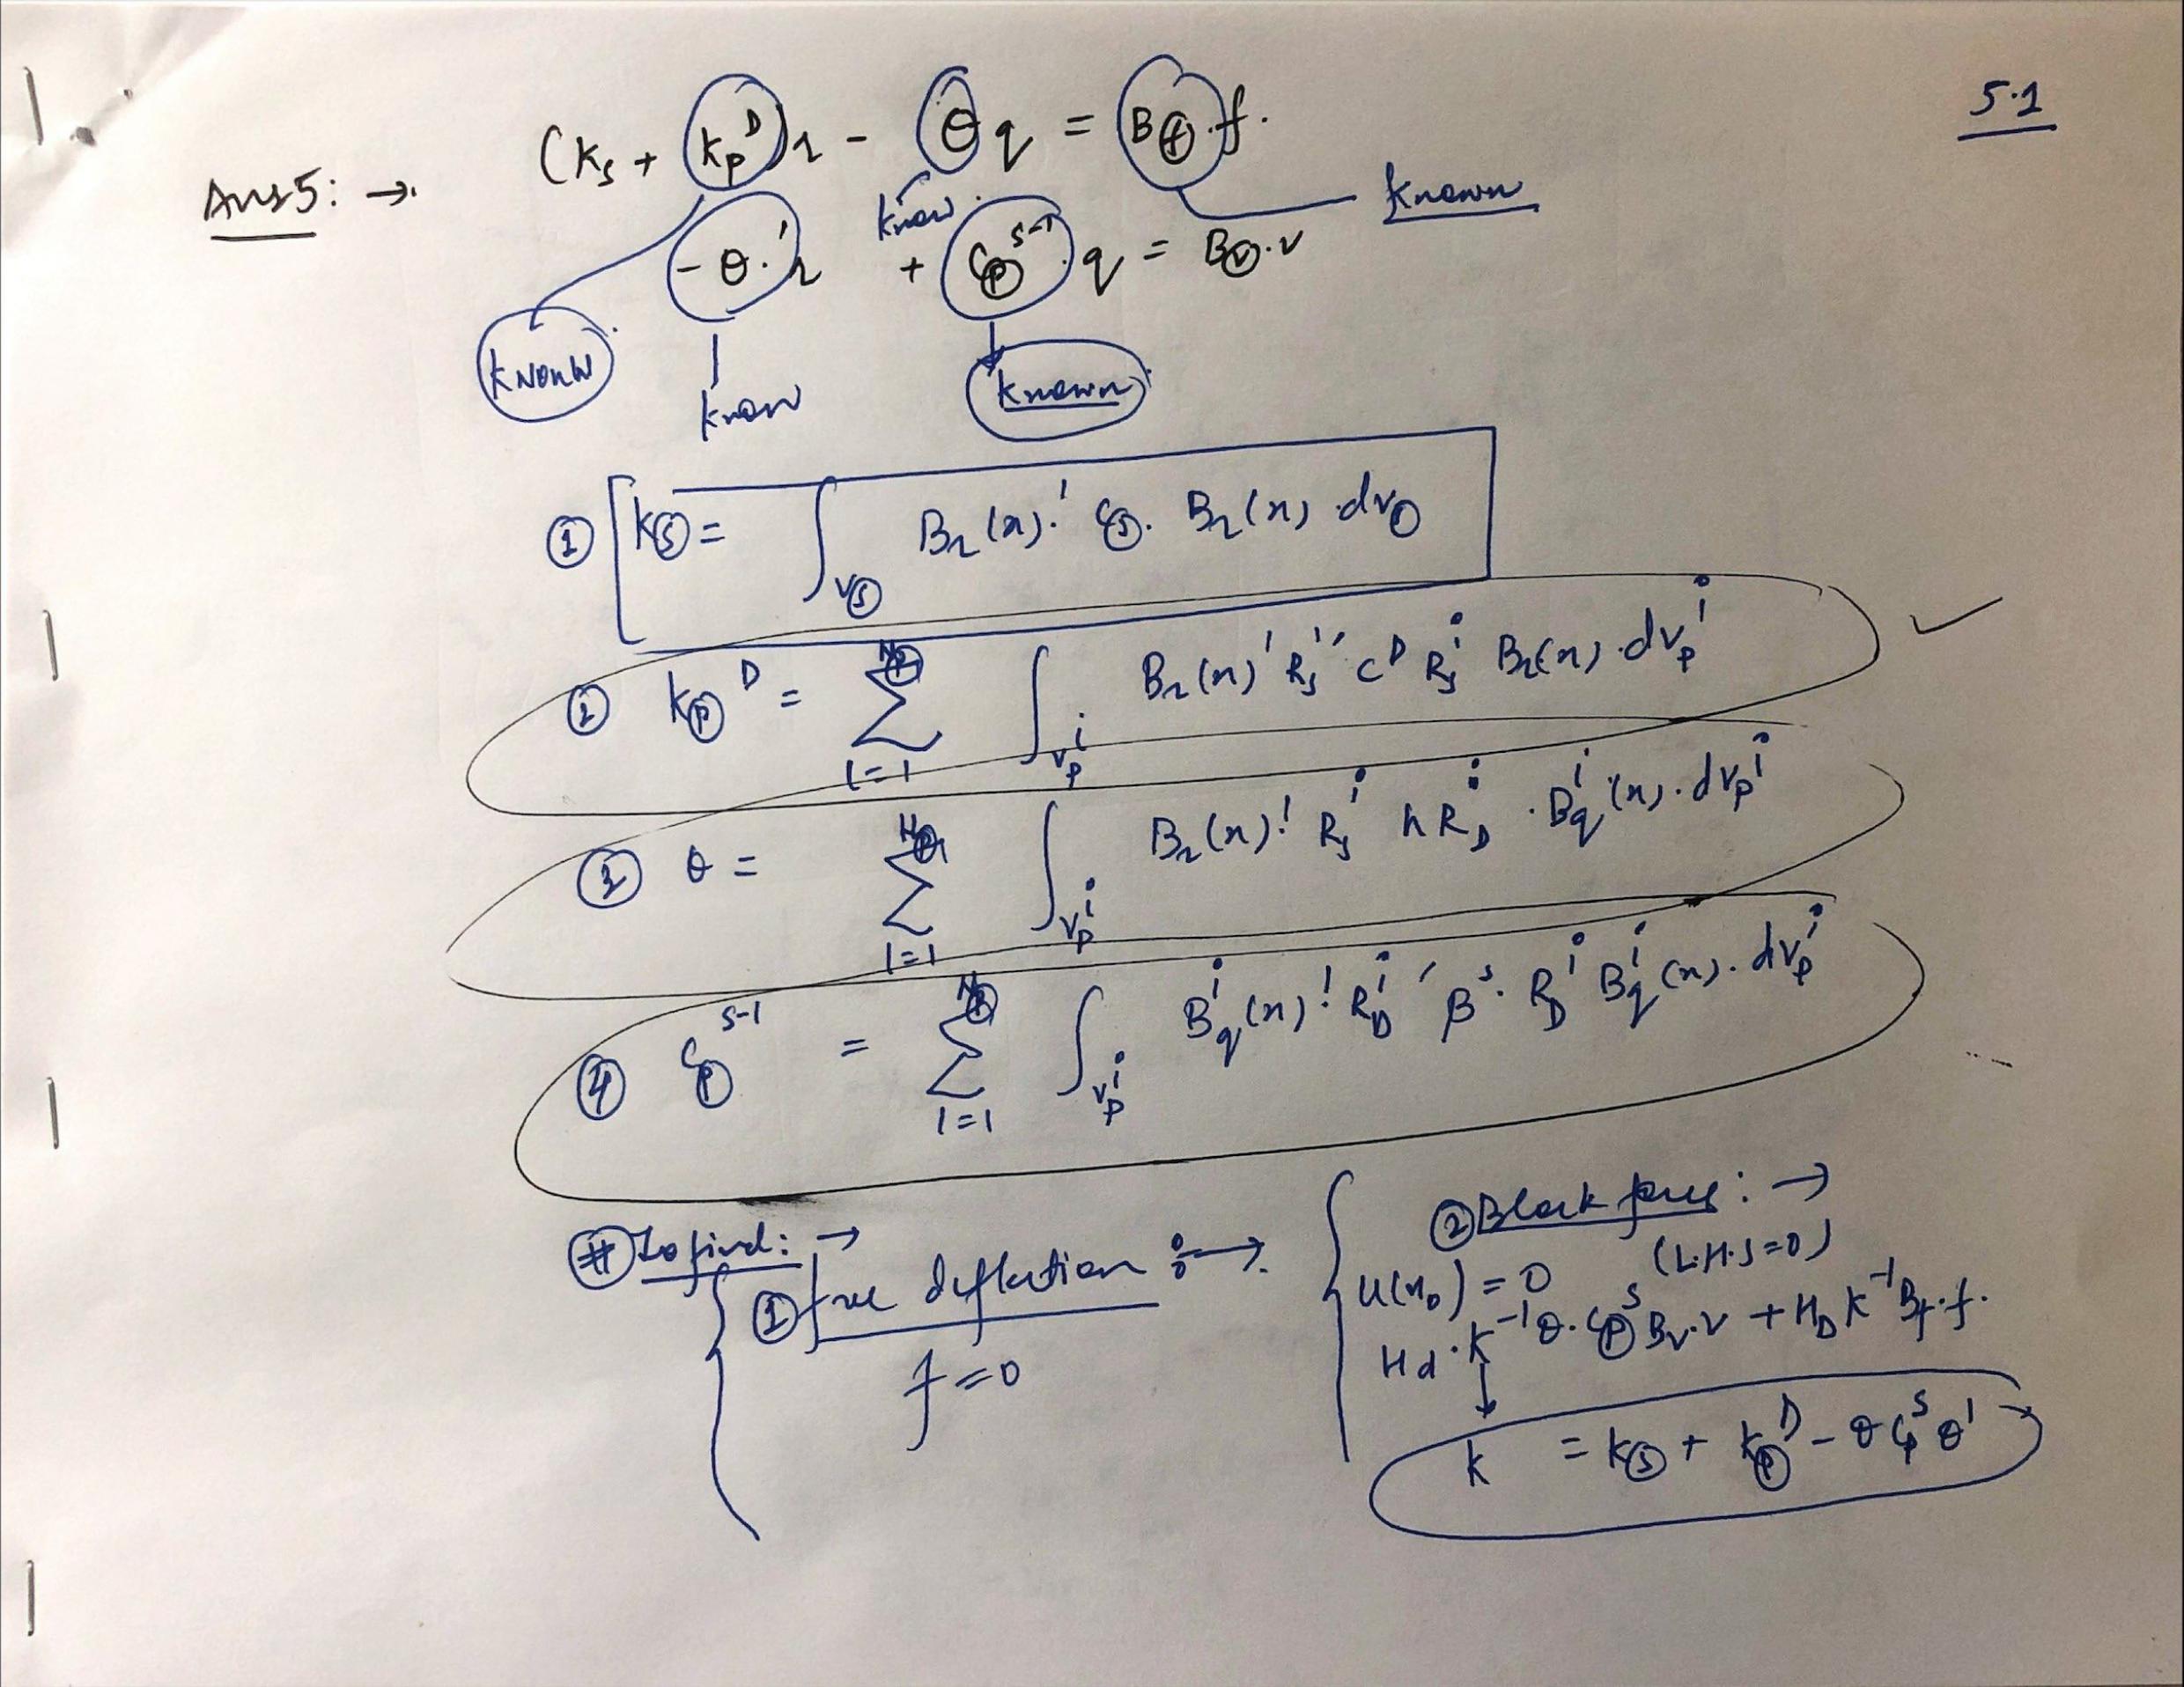 5.1
Ans5: → (Ks + Kp^D)r - θq = Bf.f.
know. known
-θ.'r + Cp^s-1.q = Bv.v
KNONW know known
① Ks = ∫Vs Br(x).' Cs. Br(x).dvs
② Kp^D = Σ i=1 Np ∫Vp^i Br(x)' Rs^i' C^D Rs^i Br(x).dVp^i ✓
③ θ = Σ i=1 Np ∫Vp^i Br(x)' Rs^i' h RD^i . Bq^i(x).dVp^i
④ Cp^s-1 = Σ i=1 Np ∫Vp^i Bq^i(x)' RD^i' β^s. RD^i Bq^i(x).dVp^i
# To find: →
① free deflection : → f = 0
② Block force : →
(L.H.S=0)
u(x0) = 0
Hd.K^-1 θ.Cp^s Bv.v + HD K^-1 Bf.f.
↓
K = Ks + Kp^D - θ Cp^s θ'